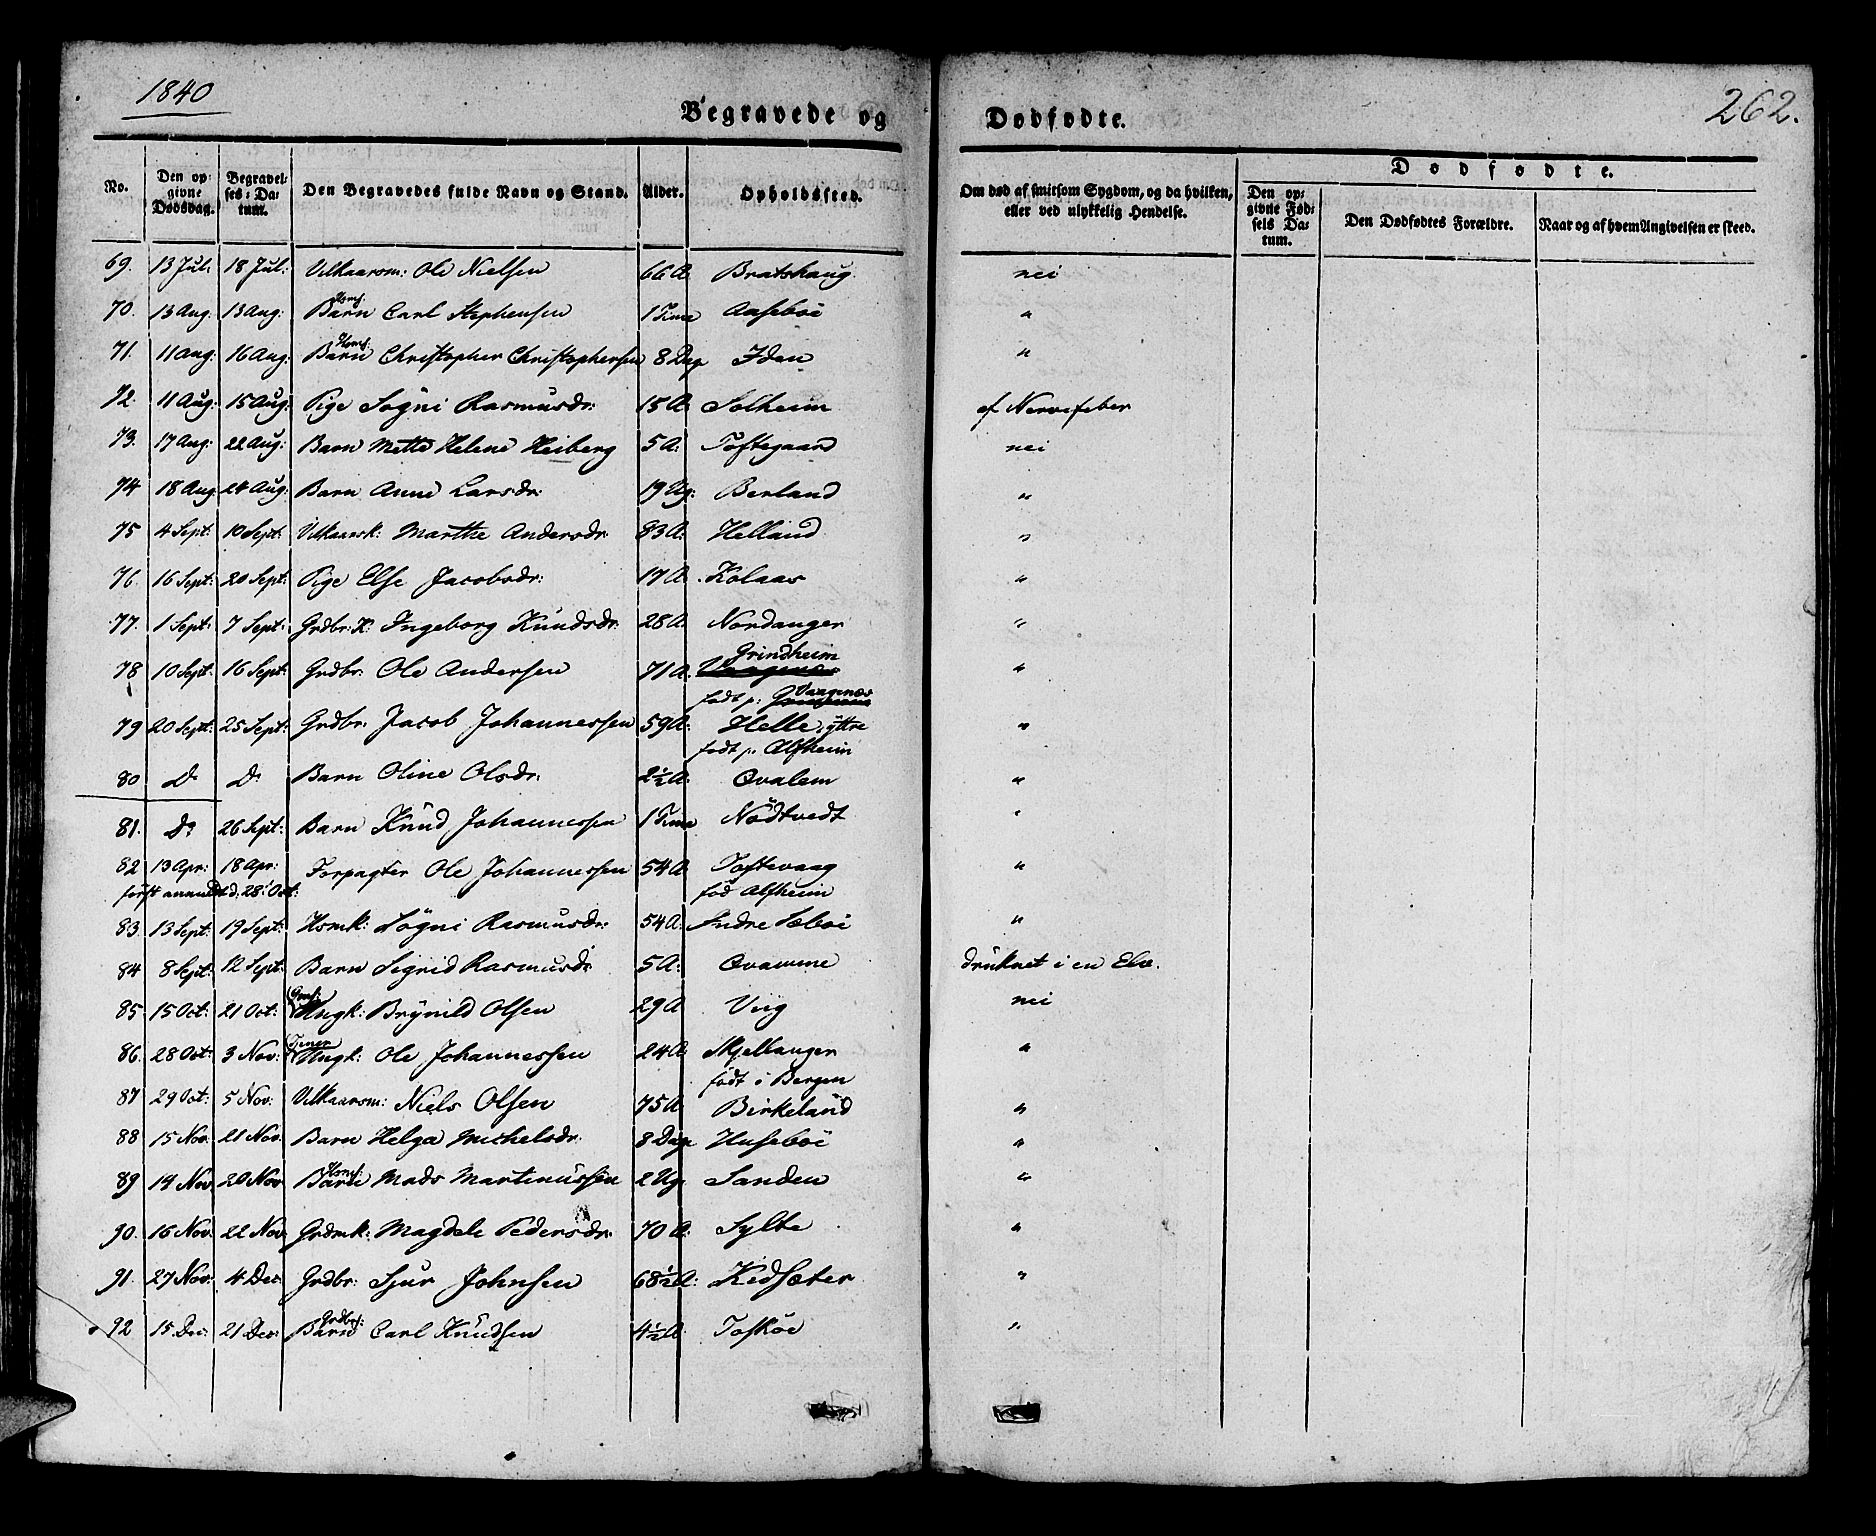 1840
262.
Begravede og Dødfødte.
Dødfødte.
No. Den opgivne Dødsdag. Begravelses-Datum. Den Begravedes fulde Navn og Stand. Alder. Opholdssted. Om død af smitsom Sygdom, og da hvilken, eller ved ulykkelig Hendelse. Den opgivne Fødsels Datum. Den Dødfødtes Forældre. Naar og af hvem Angivelsen er skeed.
69. 13 Jul: 18 Jul: Vilkaarsm: Ole Nielsen 66 A. Bratshaug nei
70. 13 Aug. 13 Aug: Hsmds: Barn Carl Stephensen 1 Time Aasebøe "
71. 11 Aug: 16 Aug: Barn Christopher Christophersen 8 Dage Iden "
72. 11 Aug: 15 Aug: Pige Søgni Rasmusdr. 15 A. Solheim af Nervefeber
73. 17 Aug: 22 Aug: Barn Mette Helene Heiberg 5 A: Toftegaard nei
74 18 Aug 24 Aug: Barn Anne Larsdr. 19 Ug: Berland "
75 4 Sept: 10 Sept: Vilkaarsk: Marthe Andersdr. 83 A. Helland "
76. 16 Sept: 20 Sept: Pige Else Jacobsdr: 17 A. Kolaas "
77. 1 Sept: 7 Sept: Grdbr: K: Ingeborg Knudsdr. 28 A. Nordanger "
78 10 Sept: 16 Sept: Grdbr: Ole Andersen 71 A. Grindheim "
født p: Vaagenes
79 20 Sept: 25 Sept: Grdbr: Jacob Johannessen 59 A: Helle, yttre "
født p. Alfheim
80 Do Do Barn Oline Olsdr. 2½ A: Qvalem "
81. Do 26 Sept: Barn Knud Johannessen 1 Time Nødtvedt "
82 13 Apr: 18 Apr: Forpagter Ole Johannessen 54 A. Toftevaag "
først anmeldt d. 28. Oct: fød Alfheim
83. 13 Sept: 19 Sept: Hsmk: Søgni Rasmusdr: 54 A: Indre Sæbøe "
84 8 Sept: 12 Sept: Barn Sigrid Rasmusdr 5 A: Qvamme druknet i en Elv.
85. 15 Oct: 21 Oct: Ungk: Brynild Olsen 29 A. Viig nei
86. 28 Oct: 3 Nov: Tjener Ungk: Ole Johannessen 24 A: Skjelvanger "
født i Bergen
87 29 Oct: 5 Nov: Vilkaarsm: Niels Olsen 75 A. Birkeland "
88 15 Nov. 21 Nov. Barn Helga Michelsdr. 8 Dage Husebøe "
89 14 Nov. 20 Nov Barn Mads Martinussen 2 Ug. Sanden "
90. 16 Nov. 22 Nov. Grdmk: Magdele Pedersdr. 70 A: Sylte "
91. 27 Nov. 4 Dec: Grdbr: Sjur Johnsen 68½ A: Kidsæter "
92 15 Dec: 21 Dec: Grdbrs: Barn Carl Knudsen 4½ A. Toskøe "